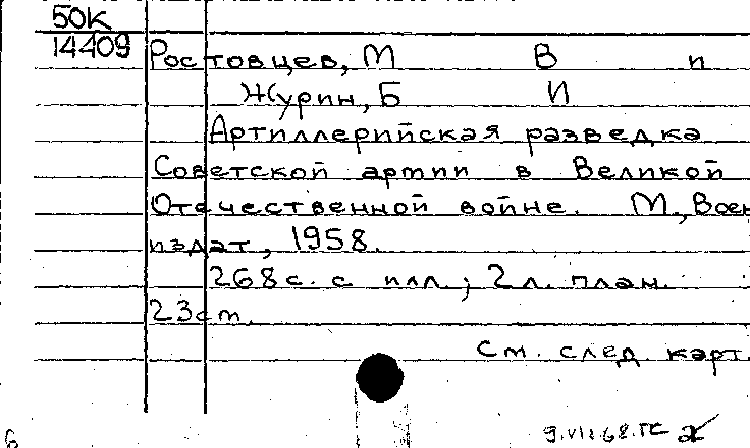 50К
14409 Ростовцев, М В и
Журин, Б И
Артиллерийская разведка
Советской артии в Великой
Отечественной войне. М., Воен
издат, 1958.
268 с. с илл.; 2 л. план.
23cm.
См. след. карт.
9.VII 68.ГС
6